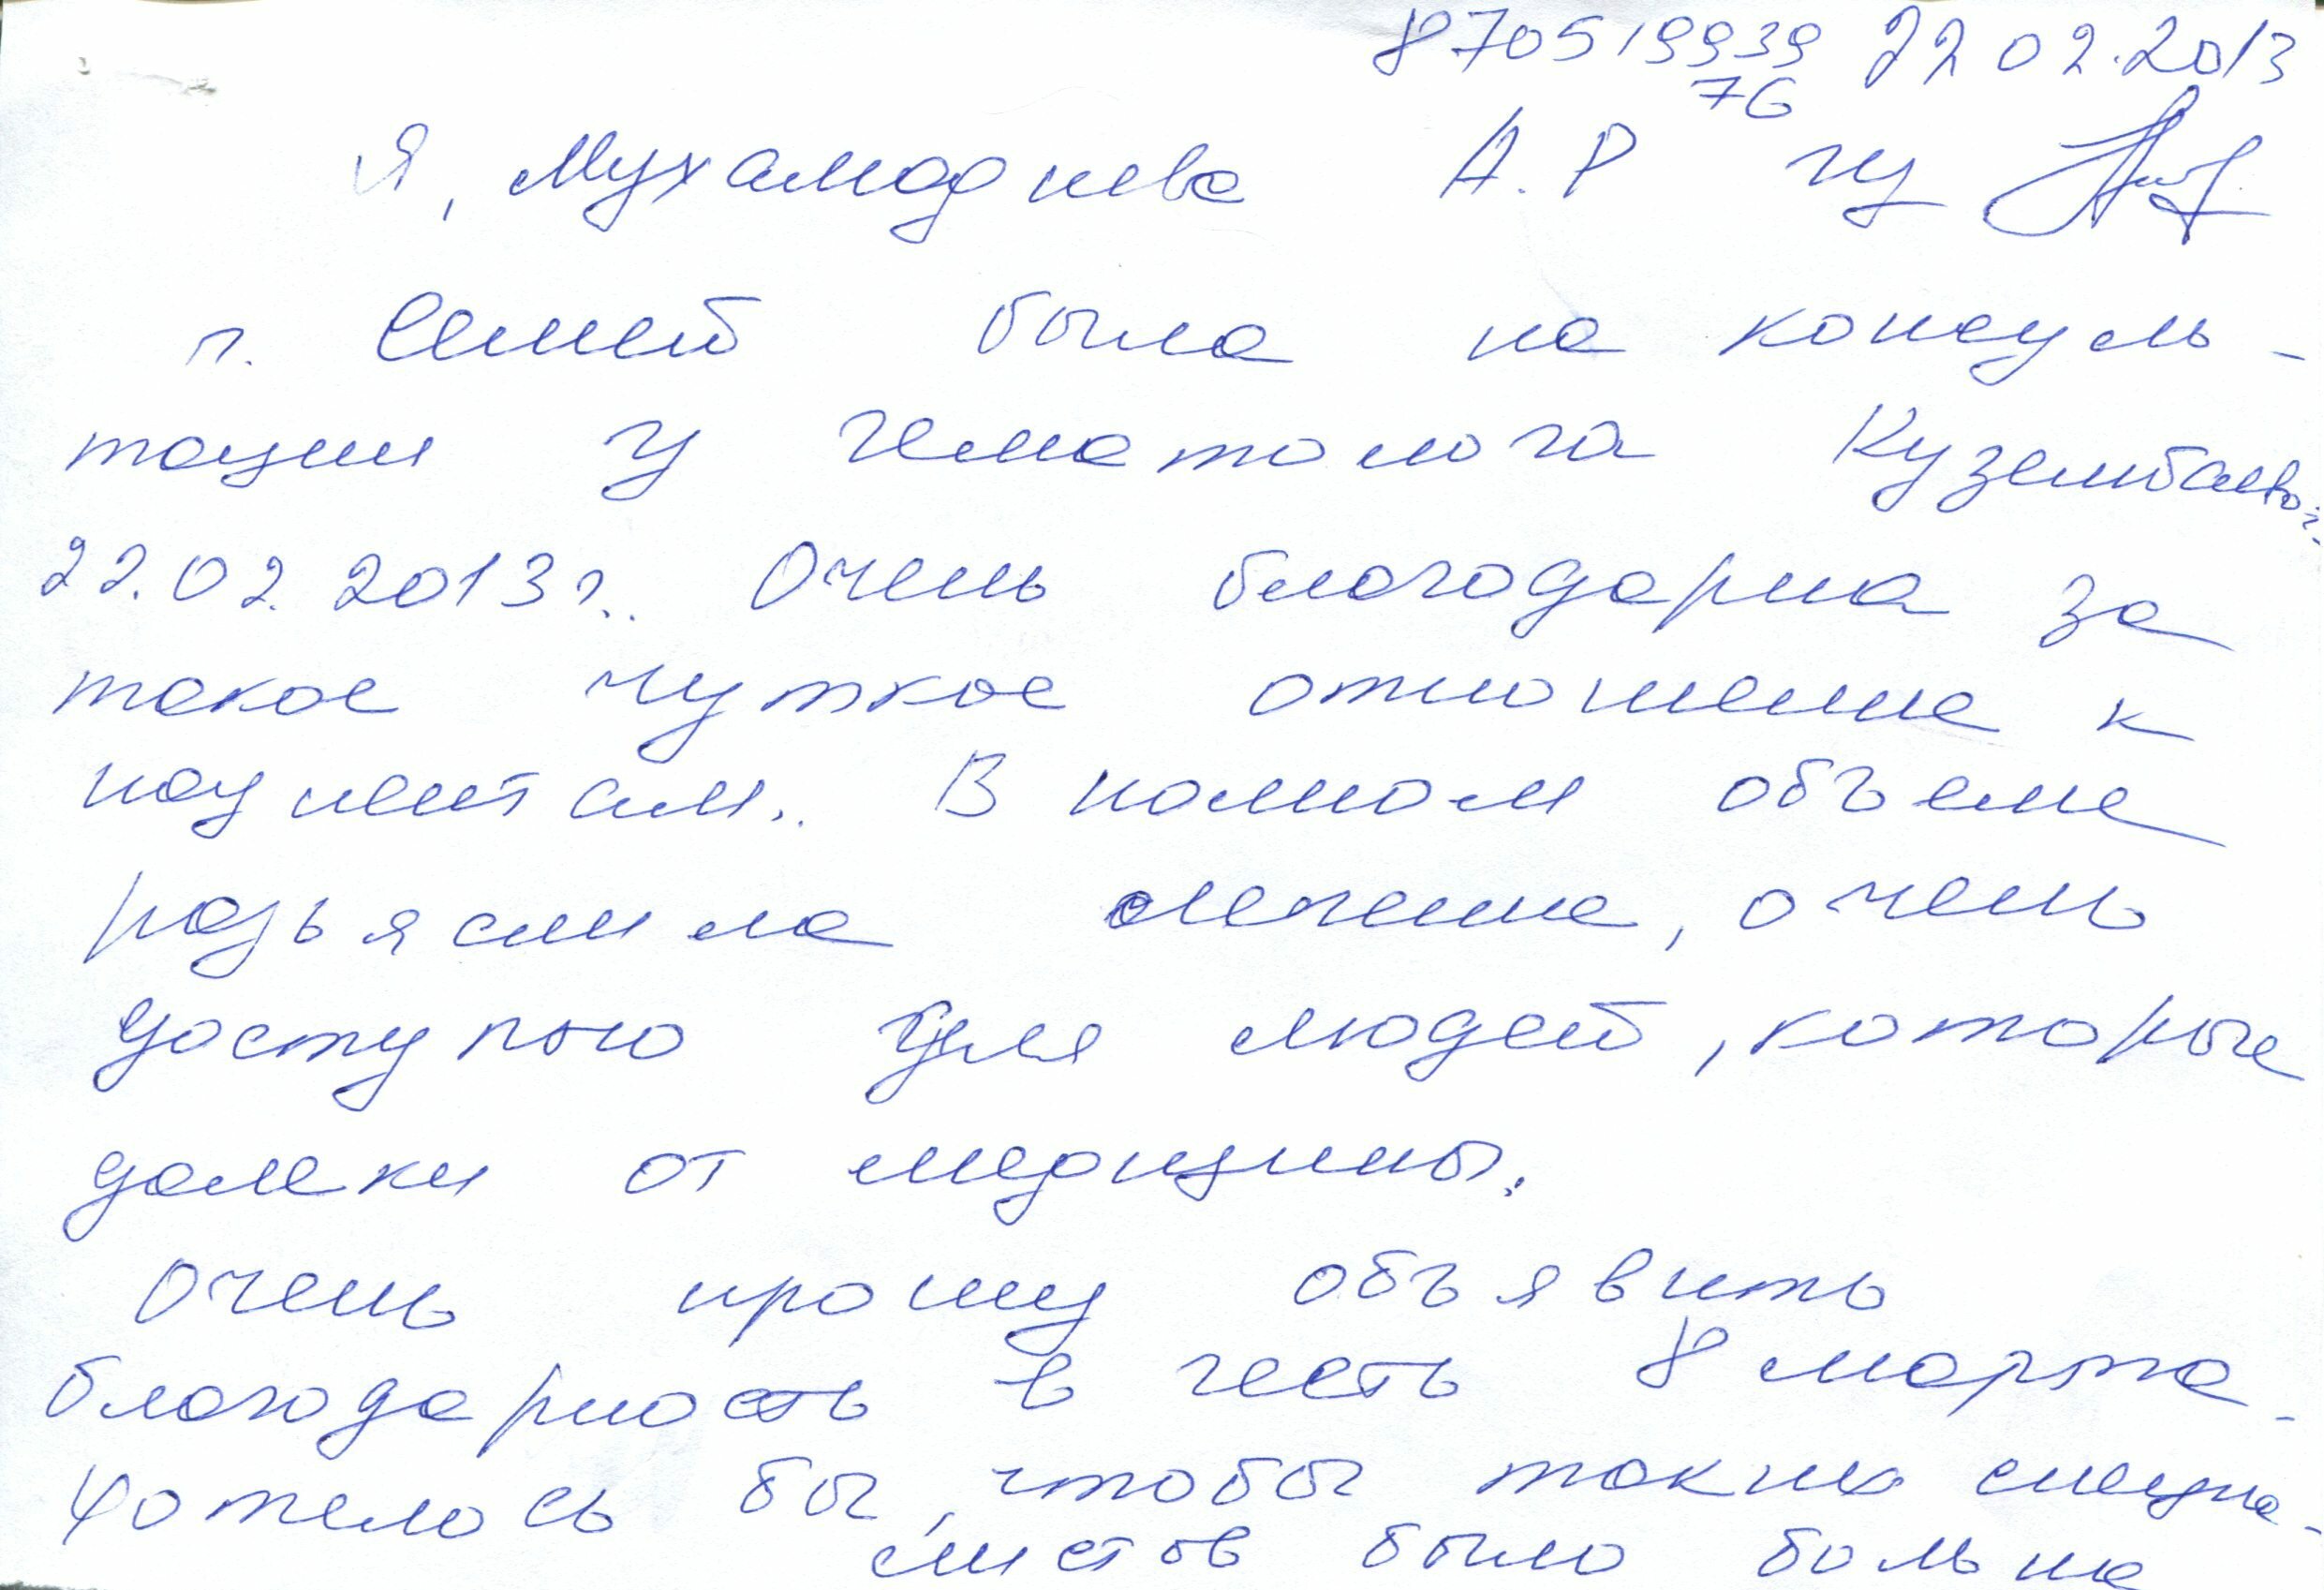 870519939 22 02.2013
76
Я, Мухамадиева А.Р из
г. Семей была на консуль-
тации у гематолога Кузембаевой
22.02.2013г. Очень благодарна за
такое чуткое отношение к
пациентам. В полном объеме
разьяснила лечение, очень
доступно для людей, которые
далеки от медицины.
Очень прошу объявить
благодарность в честь 8 марта.
Хотелось бы, чтобы таких специа-
листов было больше